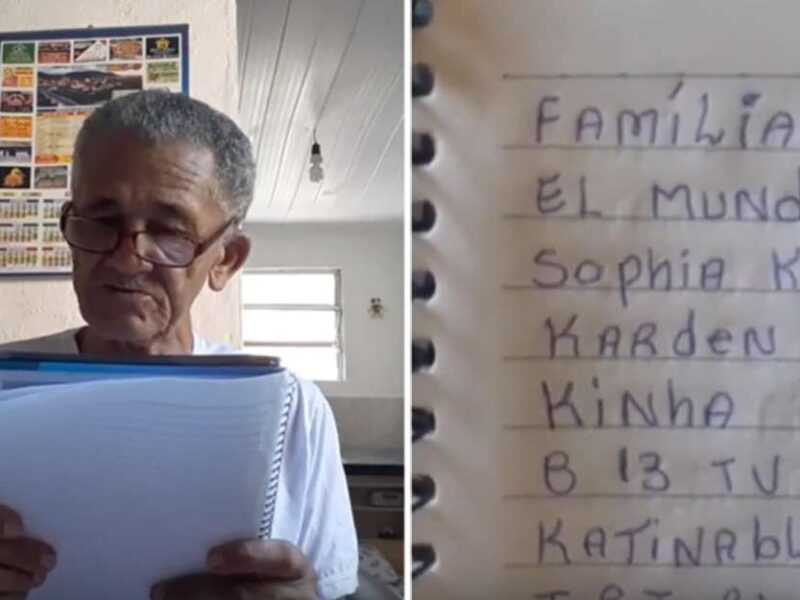 FAMÍLIA
EL MUND
SophiA K
KARdEN
KiNhA
B 13 TV
KATiNAbL